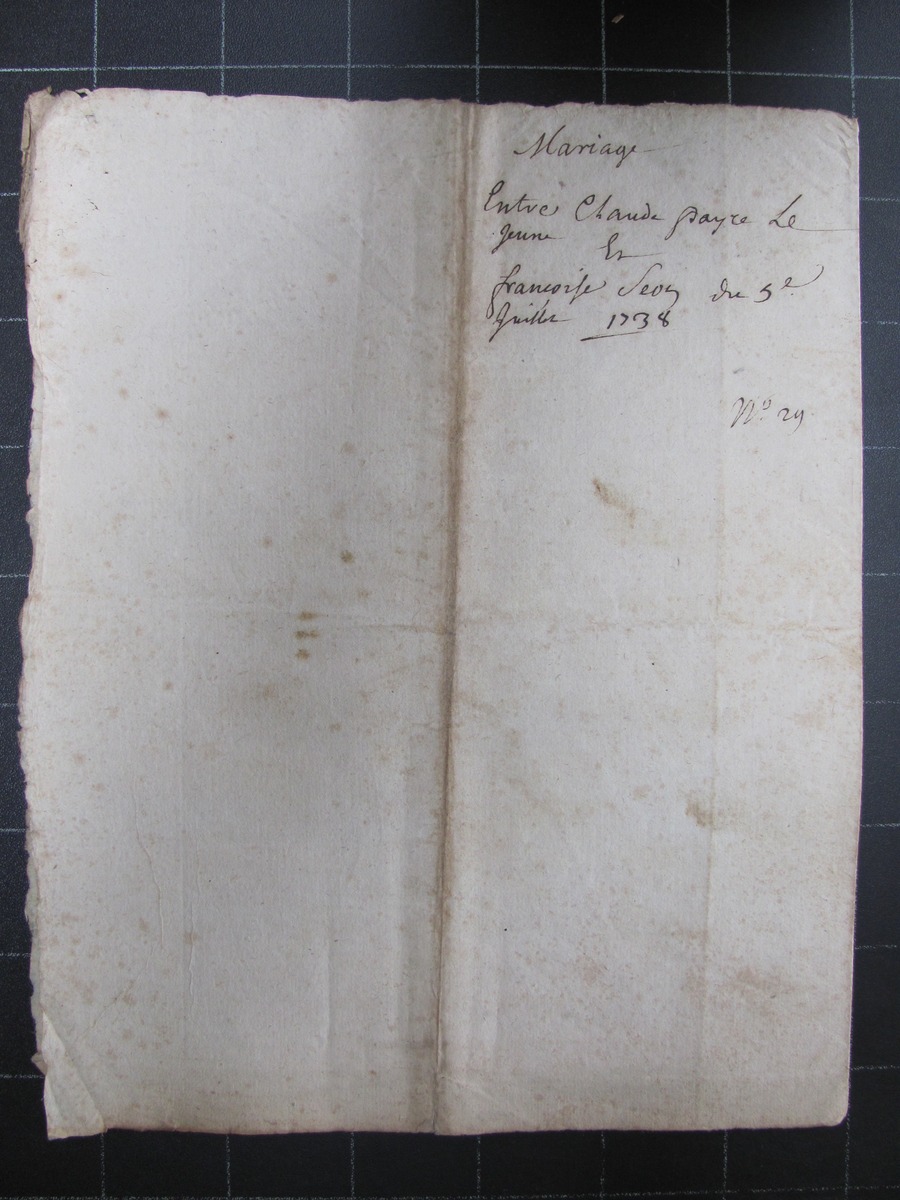 Mariage
Entre Claude payre Le
Jeune Et
françoise Seoy du 5e
Juillet 1738
No. 29